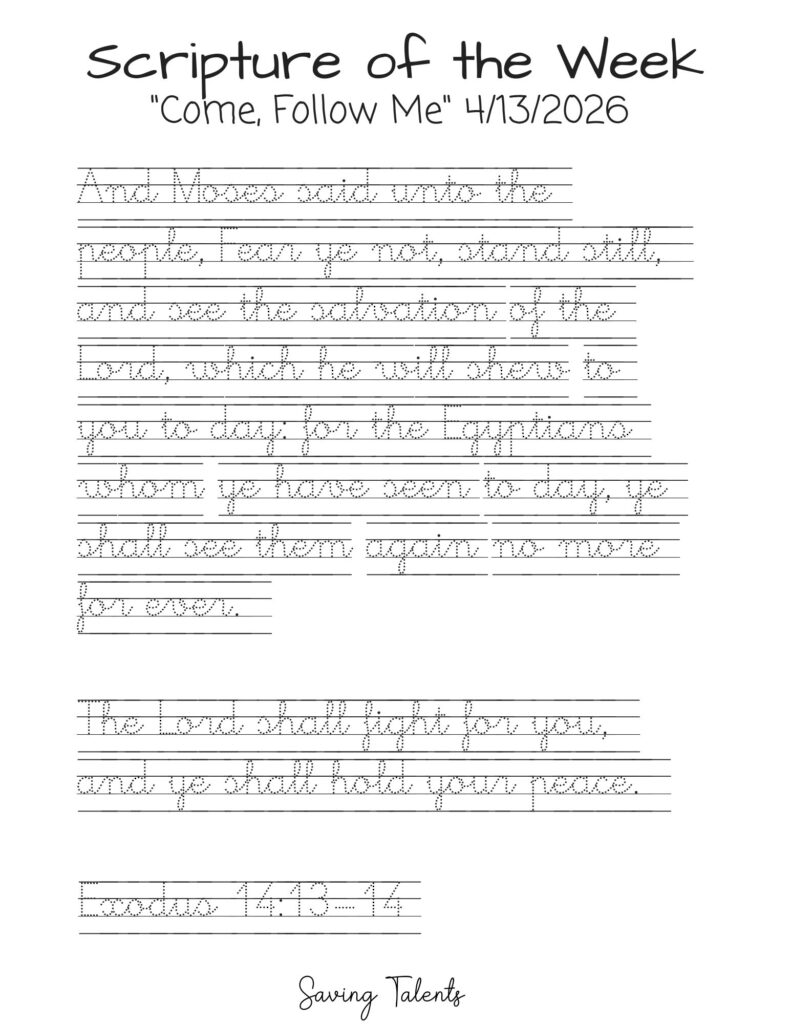 Scripture of the Week
"Come, Follow Me" 4/13/2026
And Moses said unto the
people, Fear ye not, stand still,
and see the salvation of the
Lord, which he will shew to
you to day: for the Egyptians
whom ye have seen to day, ye
shall see them again no more
for ever.
The Lord shall fight for you,
and ye shall hold your peace.
Exodus 14:13-14
Saving Talents